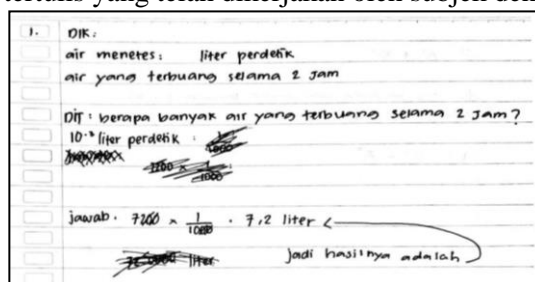 tertulis yang telah dikerjakan oleh subjek
1. DIK:
air menetes: liter perdetik
air yang terbuang selama 2 Jam
Dit: berapa banyak air yang terbuang selama 2 Jam?
10⁻³ liter perdetik
7200 × 1/1000
jawab. 7200 × 1/1000 . 7,2 liter
liter Jadi hasilnya adalah